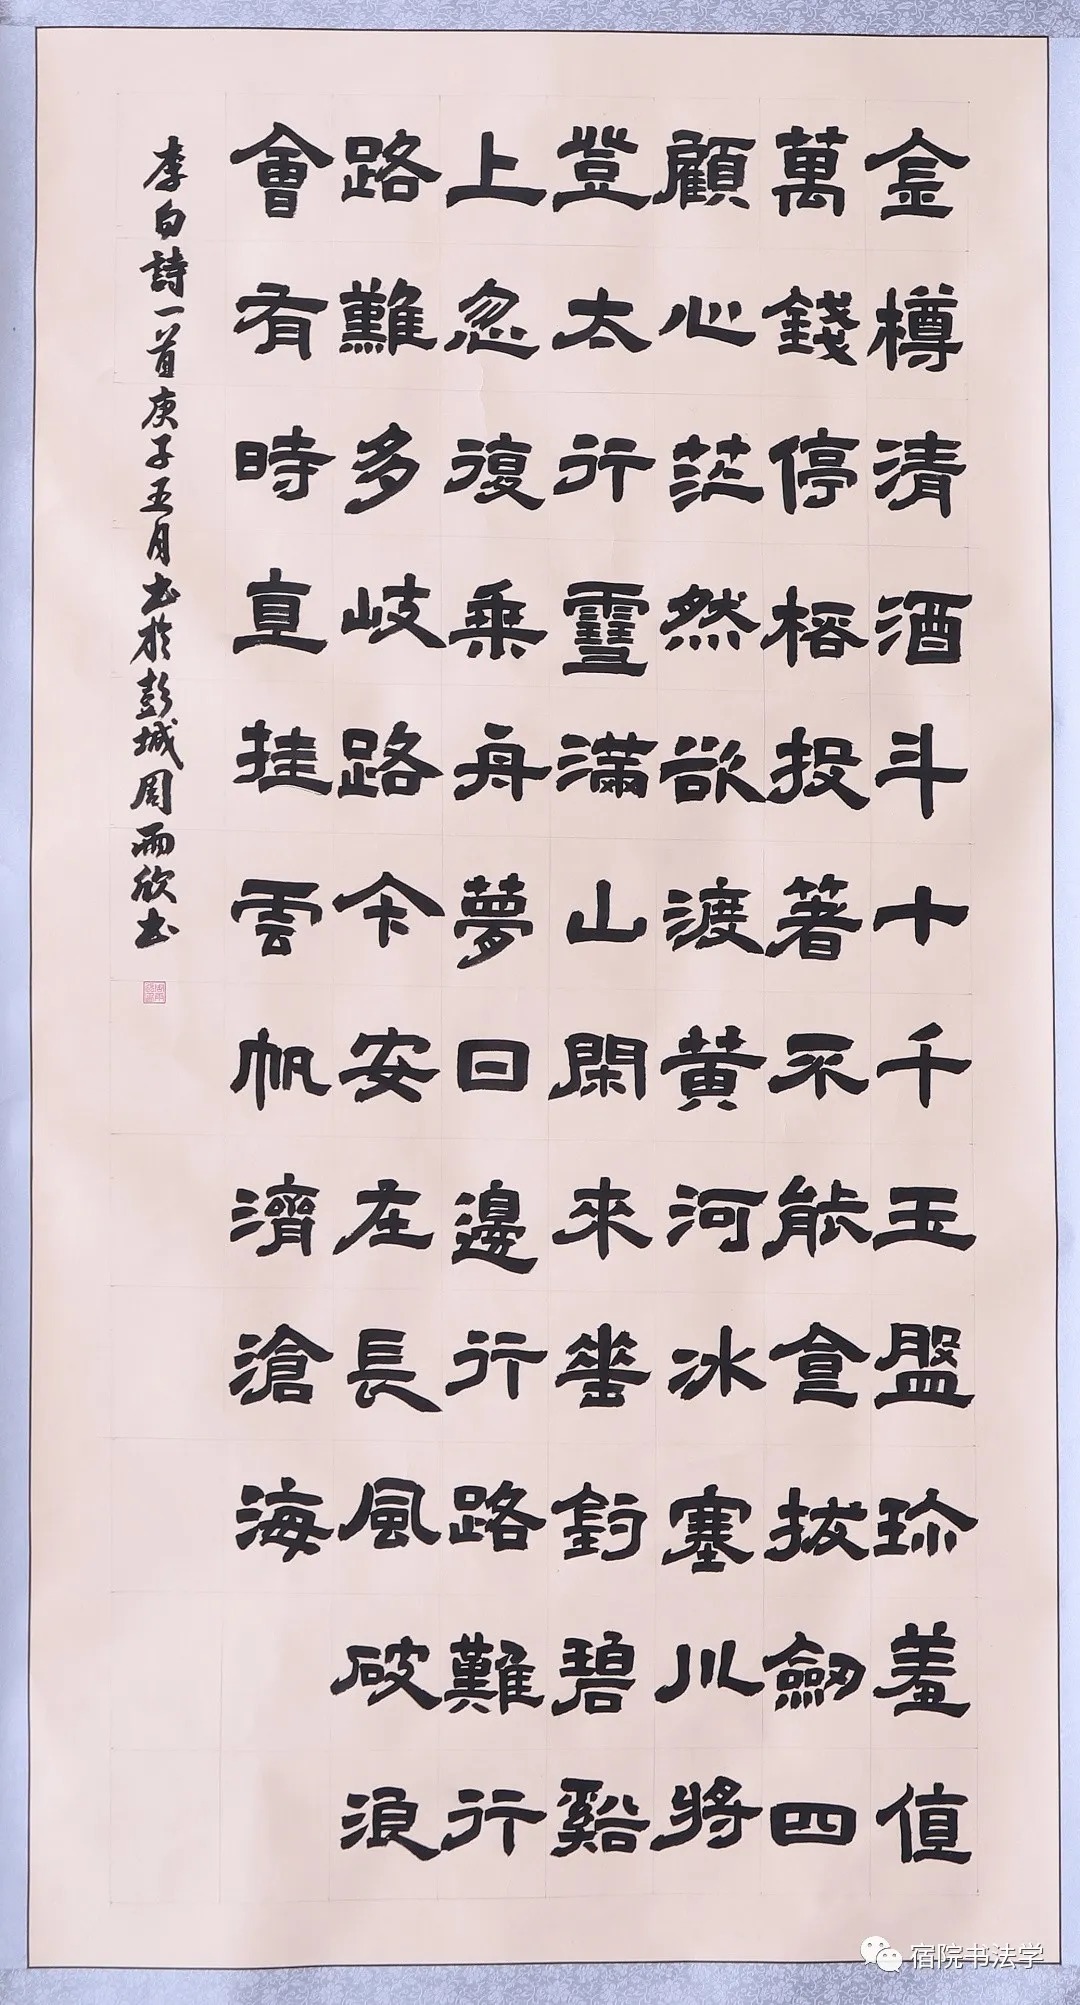 金樽清酒斗十千玉盤珎羞值
萬錢停桮投著不能食拔劒四
顧心茫然欲渡黃河冰塞川將
登太行雪滿山閑來垂釣碧谿
上忽復乘舟夢日邊行路難行
路難多岐路今安在長風破浪
會有時直挂雲帆濟滄海
李白詩一首庚子五月書於彭城周雨欣書
宿院书法学